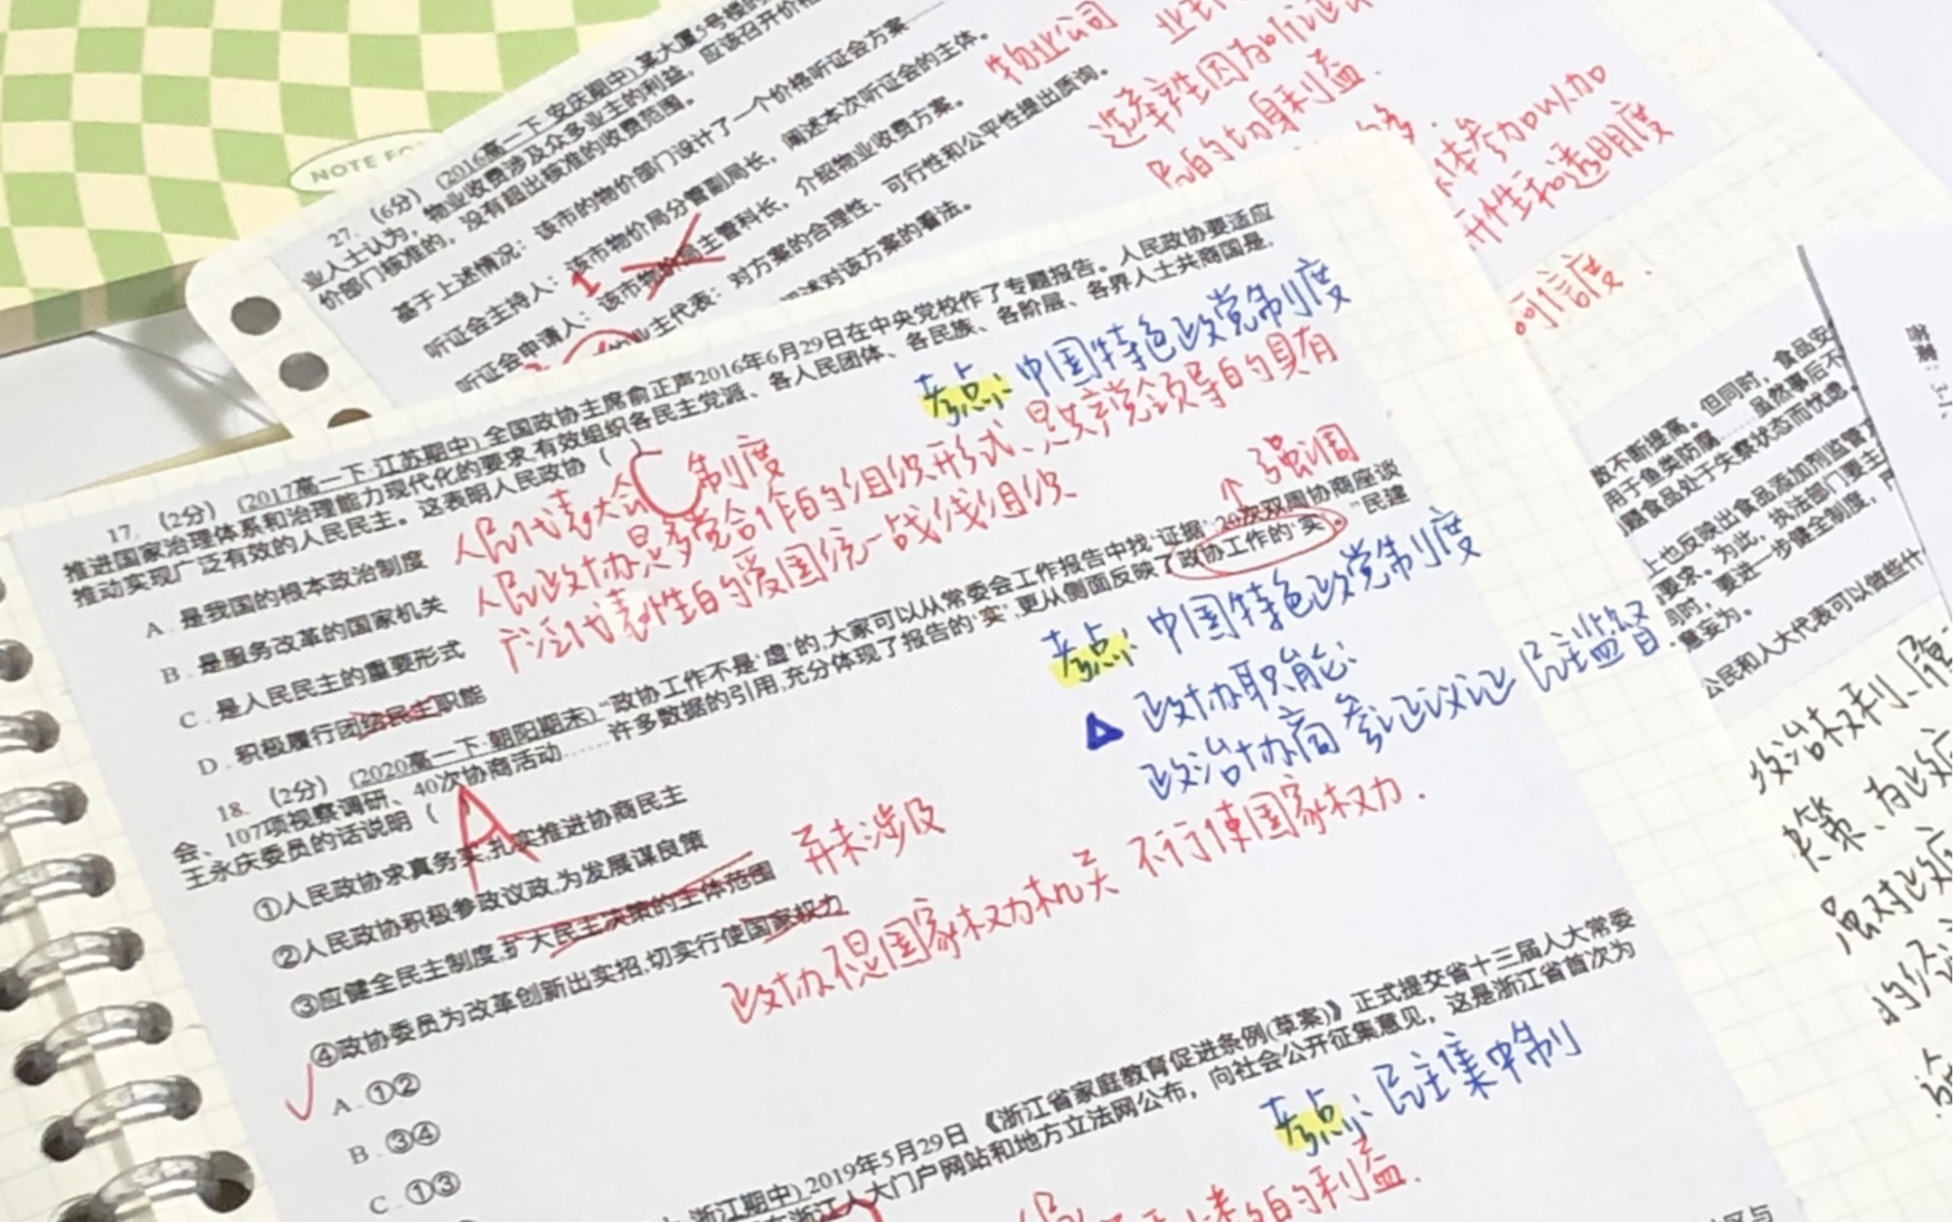 NOTE FO
27. (6分) (2016高一下·安庆期中)某大厦5号楼的
业人士认为,物业收费涉及众多业主的利益,应该召开价格
价部门核准的,没有超出核准的收费范围。
基于上述情况:该市的物价部门设计了一个价格听证会方案
听证会主持人:该市物价局分管副局长,阐述本次听证会的主体。
听证会申请人:该市物价局主管科长,介绍物业收费方案。
业主代表:对方案的合理性、可行性和公平性提出质询。
述对该方案的看法。
物业公司
选择
民的切身利益.
体参加以加
性和透明度
17. (2分) (2017高一下·江苏期中)全国政协主席俞正声2016年6月29日在中央党校作了专题报告。人民政协要适应
推进国家治理体系和治理能力现代化的要求,有效组织各民主党派、各人民团体、各民族、各阶层、各界人士共商国是,
推动实现广泛有效的人民民主。这表明人民政协 ( )
C
考点:中国特色政党制度
A . 是我国的根本政治制度
人民代表大会制度
B . 是服务改革的国家机关
人民政协是多党合作的组织形式、是共产党领导的具有
C . 是人民民主的重要形式
广泛代表性的爱国统一战线组织
D . 积极履行团结民主职能
↑ 强调
18. (2分) (2020高一下·朝阳期末)“政协工作不是‘虚’的,大家可以从常委会工作报告中找‘证据’:20次双周协商座谈
会、107项视察调研、40次协商活动……许多数据的引用,充分体现了报告的‘实’,更从侧面反映了政协工作的‘实’。”民建
王永庆委员的话说明 ( )
A
考点:中国特色政党制度
政协职能:
政治协商 参政议政 民主监督.
①人民政协求真务实,扎实推进协商民主
②人民政协积极参政议政,为发展谋良策
③应健全民主制度,扩大民主决策的主体范围
并未涉及
④政协委员为改革创新出实招,切实行使国家权力
政协不是国家权力机关 不行使国家权力.
A . ①②
B . ③④
C . ①③
浙江期中)2019年5月29日《浙江省家庭教育促进条例(草案)》正式提交省十三届人大常委
在浙江人大门户网站和地方立法网公布,向社会公开征集意见,这是浙江省首次为
考点:民主集中制
的利益.
不断提高。但同时,食品安
用于鱼类防腐……虽然事后不
题食品处于失察状态而忧虑。
上也反映出食品添加剂监管方
要求。为此,执法部门要主
同时,要进一步健全制度,严
意妄为。
公民和人大代表可以做些什
政治权利、履